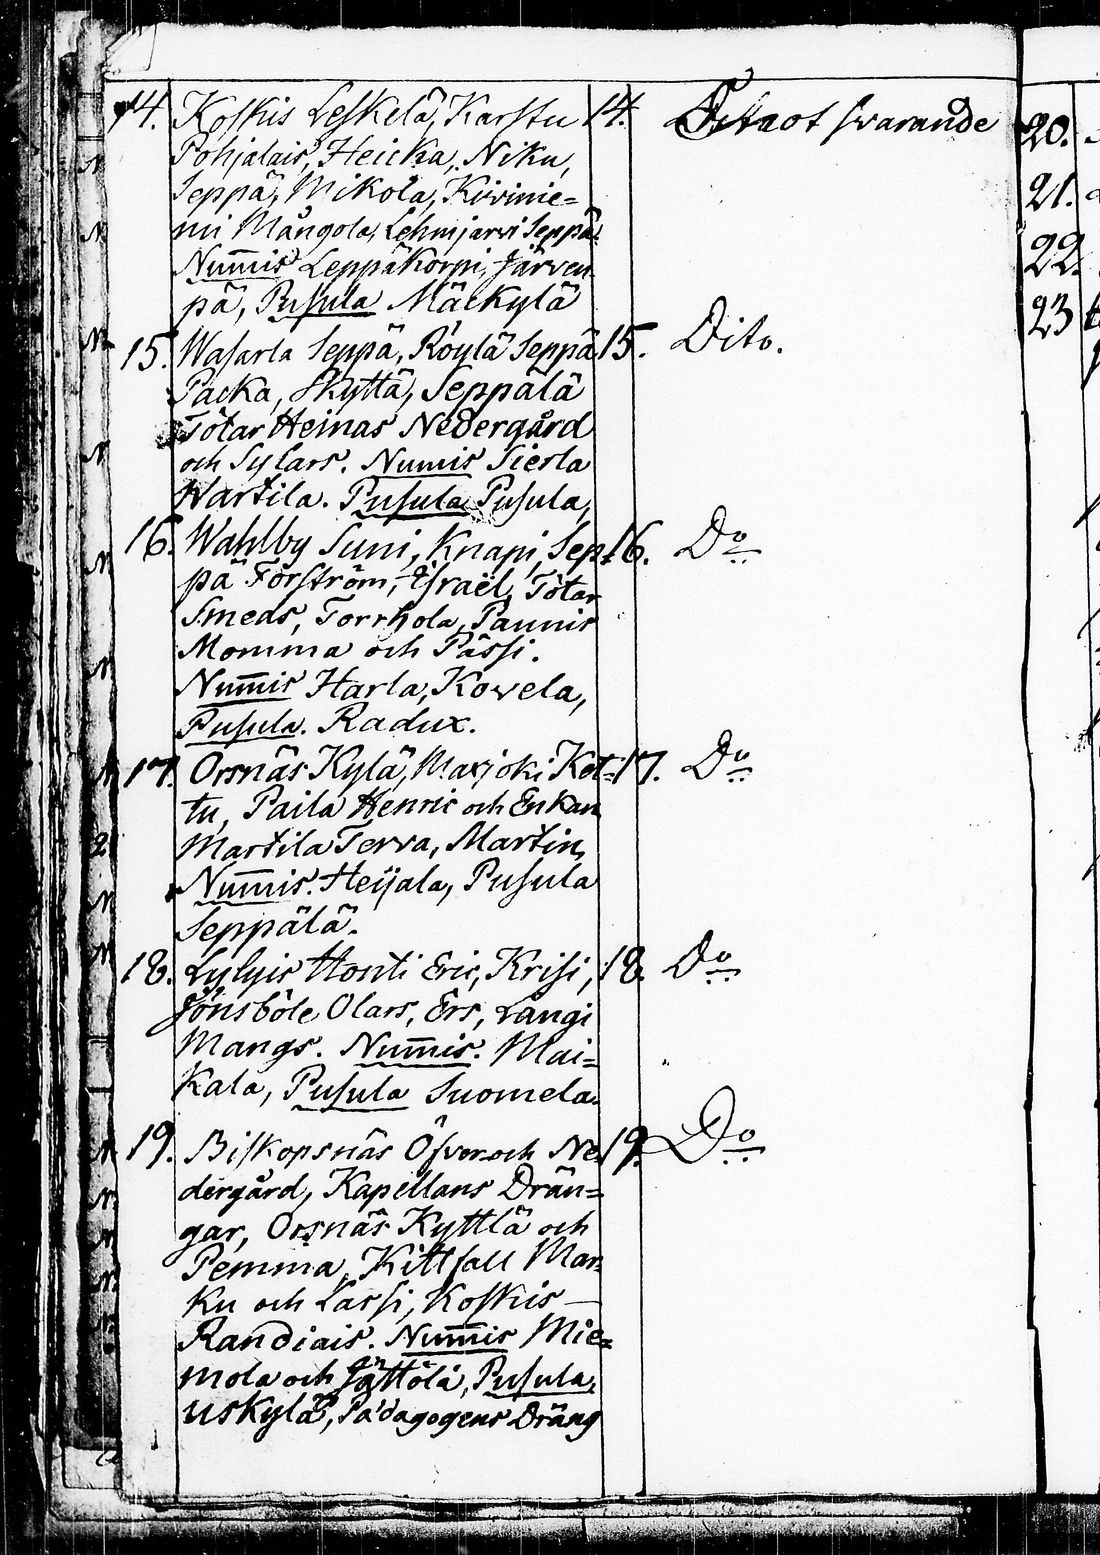 14. Koskis Leskelä, Karstu 14. Ditaot swarande
Pohjalais, Heicka, Niku,
Seppä, Mikola, Kivinie=
mi Mångola, Lehmjarvi Seppä.
Num̅is Leppäkorpi, Järven
pä, Pusula Mäckylä
15. Wasarla Seppä, Röylä Seppä 15. Dito.
Packa, Skyttä, Seppälä
Tötar Heinas Nedergård
och Sylars. Numis Sierla
Wartila. Pusula Pusula,
16. Wahlby Suni, Knapi, Sep= 16. Do
pä Forström, Israël, Tötar
Smeds, Torrhola, Paunis
Momma och Pässi.
Num̅is Harla, Kovela,
Pusula. Radux.
17. Orsnäs Kylä, Marjoki Kot= 17. Do
tu, Paila Henric och Enkan
Martila Terva, Martin,
Num̅is. Heijala, Pusula
Seppälä.
18. Lylyis Honti Eric, Krisi, 18. Do
Jönsböle Olars, Ers, Långi
Mangs. Num̅is. Mai=
kala, Pusula Suomela.
19. Biskopsnäs Öfver och Ne 19. Do
dergård, Kapellans Drän=
gar, Orsnäs Kyttlä och
Pemma, Kittfall Mar
ku och Lassi, Koskis
Randiais. Num̅is Mie=
mola och Jättölä, Pusula,
uskylä, Pädagogens Dräng
20.
21.
22.
23